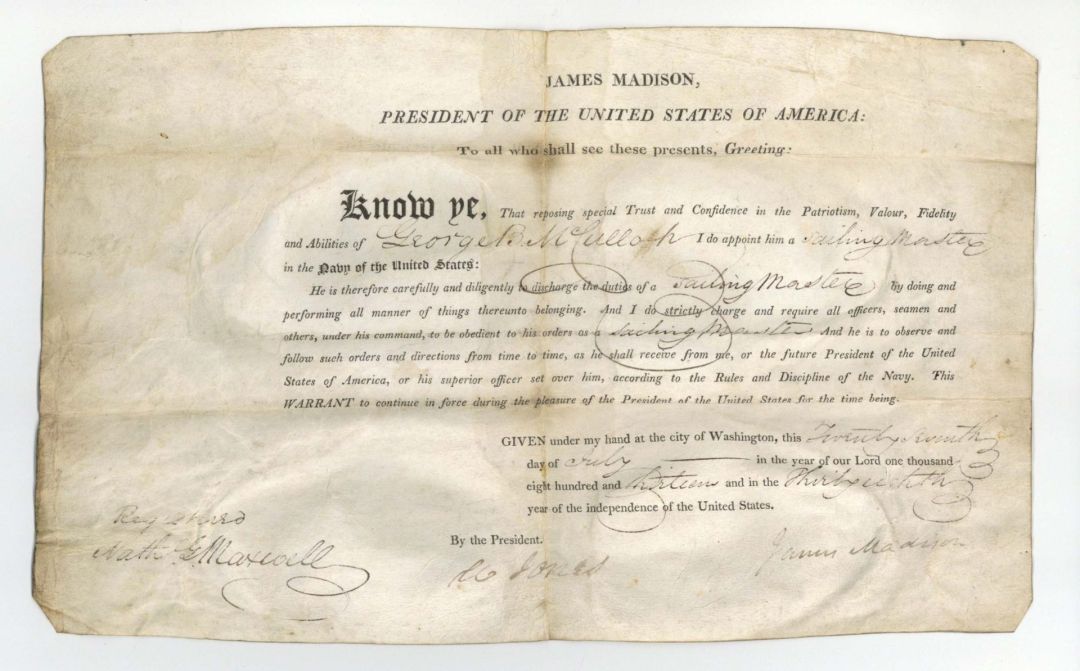 JAMES MADISON,
PRESIDENT OF THE UNITED STATES OF AMERICA:
To all who shall see these presents, Greeting:
Know ye, That reposing special Trust and Confidence in the Patriotism, Valour, Fidelity
and Abilities of George B. McCulloch I do appoint him a Sailing Master
in the Navy of the United States:
He is therefore carefully and diligently to discharge the duties of a Sailing Master by doing and
performing all manner of things thereunto belonging. And I do strictly charge and require all officers, seamen and
others, under his command, to be obedient to his orders as a Sailing Master And he is to observe and
follow such orders and directions from time to time, as he shall receive from me, or the future President of the United
States of America, or his superior officer set over him, according to the Rules and Discipline of the Navy. This
WARRANT to continue in force during the pleasure of the President of the United States for the time being.
GIVEN under my hand at the city of Washington, this Twenty
day of July in the year of our Lord one thousand
eight hundred and thirteen and in the Thirty eighth
year of the independence of the United States.
Registered
Nath. G. Maxwell
By the President.
W Jones
James Madison